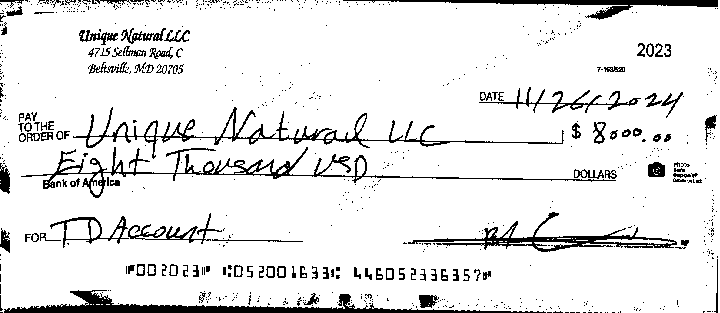 Unique Natural LLC
4715 Sellman Road, C
Beltsville, MD 20705
2023
7-163/520
DATE 11/26/2024
PAY TO THE ORDER OF Unique Natural LLC $ 8000.00
Eight Thousand USD DOLLARS
Bank of America
FOR TD Account
⑈002023⑈ ⑆052001633⑆ 446052336357⑈